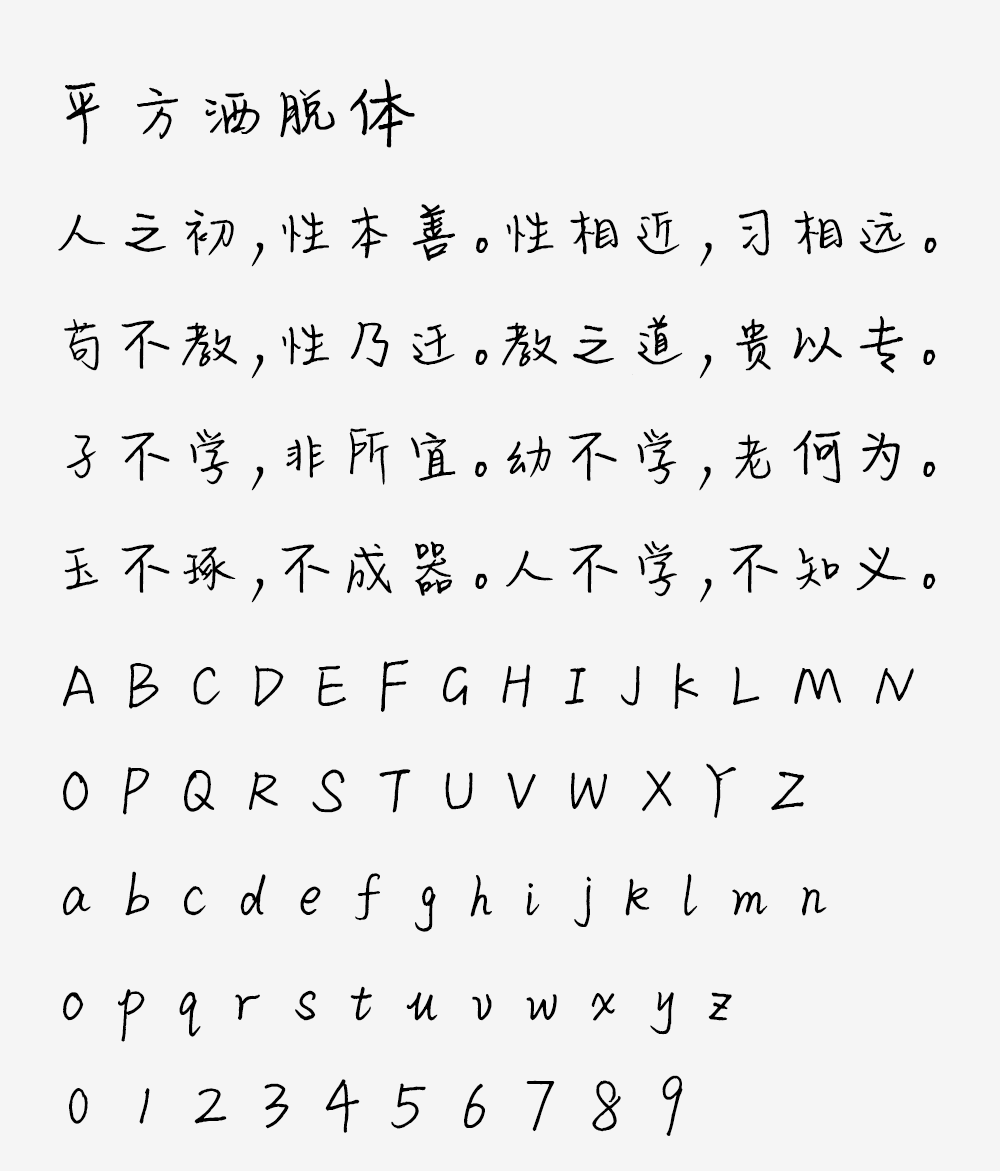 平方洒脱体
人之初,性本善。性相近,习相远。
苟不教,性乃迁。教之道,贵以专。
子不学,非所宜。幼不学,老何为。
玉不琢,不成器。人不学,不知义。
A B C D E F G H I J K L M N
O P Q R S T U V W X Y Z
a b c d e f g h i j k l m n
o p q r s t u v w x y z
0 1 2 3 4 5 6 7 8 9